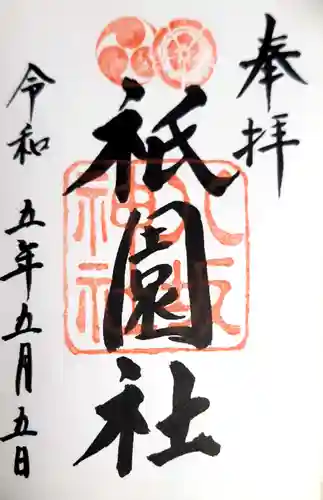 奉拝
八坂神社
祇園社
令和五年五月五日